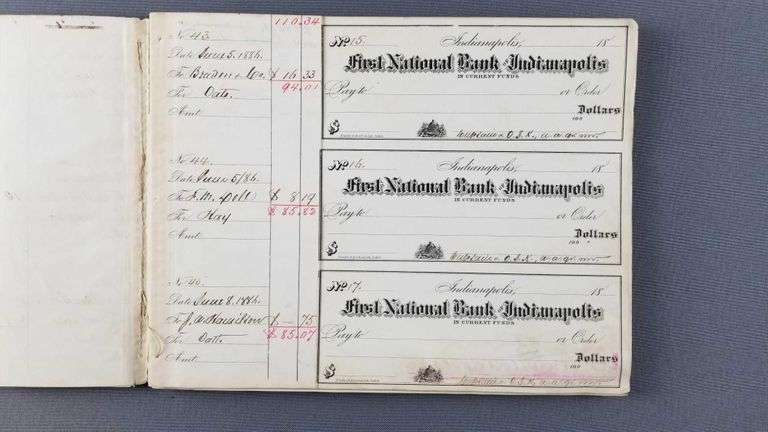 110.34
No 43
Date June 5. 1886.
To $ 16 33
94.01
For Oats.
Amt
No. 44
Date June 5/86
To J. M. $ 8 19
$ 85.82
For Hay
Amt
No 45
Date June 8. 1886.
To $ 75
$ 85.07
For Oats
Amt
No 15. Indianapolis, 18
First National Bank of Indianapolis
IN CURRENT FUNDS
Pay to or Order
Dollars
100
$
No 16. Indianapolis, 18
First National Bank of Indianapolis
IN CURRENT FUNDS
Pay to or Order
Dollars
100
$
No 17. Indianapolis, 18
First National Bank of Indianapolis
IN CURRENT FUNDS
Pay to or Order
Dollars
100
$